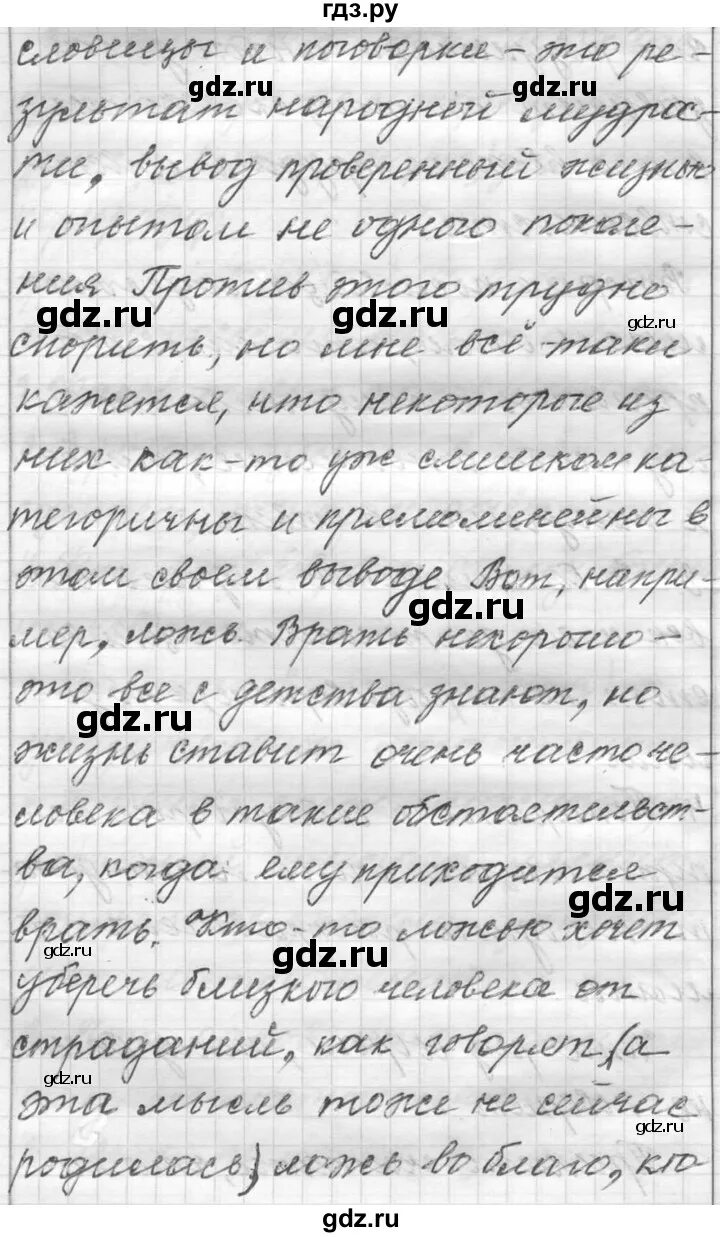 гдз.ру
словицы и поговорки – это ре-
gdz.ru gdz.ru
зультат народной мудрос-
ти, вывод проверенный жизнью
gdz.ru gdz.ru
и опытом не одного поколе-
ния. Против этого трудно
gdz.ru gdz.ru gdz.ru
спорить, но мне всё-таки
кажется, что некоторые из
них как-то уж слишком ка-
тегоричны и прямолинейны в
этом своем выводе. Вот, напри-
gdz.ru
мер, ложь. Врать нехорошо –
это все с детства знают, но
gdz.ru
жизнь ставит очень часто че-
ловека в такие обстоятельст-
ва, когда ему приходится
gdz.ru
врать. Кто-то ложью хочет
gdz.ru gdz.ru
уберечь близкого человека от
страданий, как говорят, (а
gdz.ru gdz.ru
эта мысль тоже не сейчас
gdz.ru
родилась) ложь во благо, кто
gdz.ru